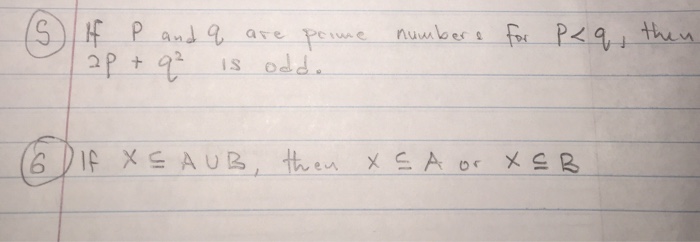 5) If P and q are prime numbers for P<q, then
2p + q² is odd.
6) If X ⊆ A ∪ B, then X ⊆ A or X ⊆ B